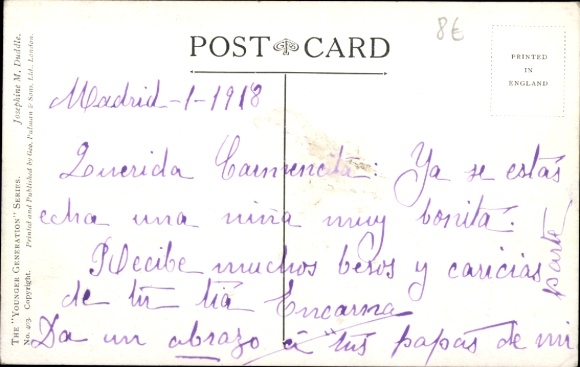 8€
POST CARD
PRINTED
IN
ENGLAND
Madrid-1-1918
Querida Carmencita: Ya se estás
echa una niña muy bonita.
Recibe muchos besos y caricias
de tu tiá Encarna
Da un abrazo á tus papás de mi
parte
THE "YOUNGER GENERATION" SERIES. Josephine M. Duddle.
No. 423. Copyright. Printed and Published by Geo. Pulman & Sons, Ltd., London.